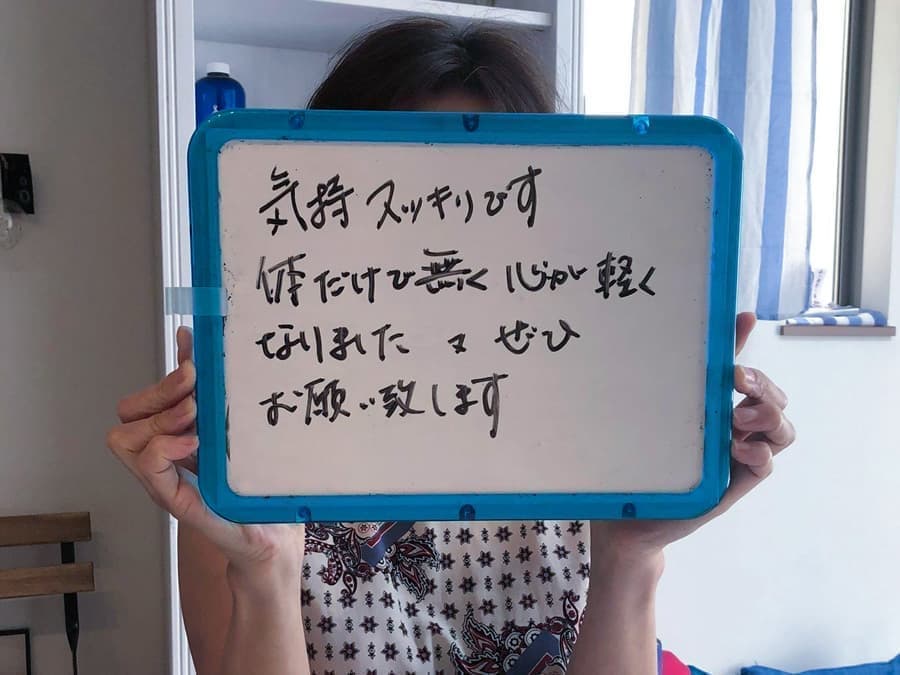 気持スッキリです
体だけで無く心が軽く
なりました 又 ぜひ
お願い致します